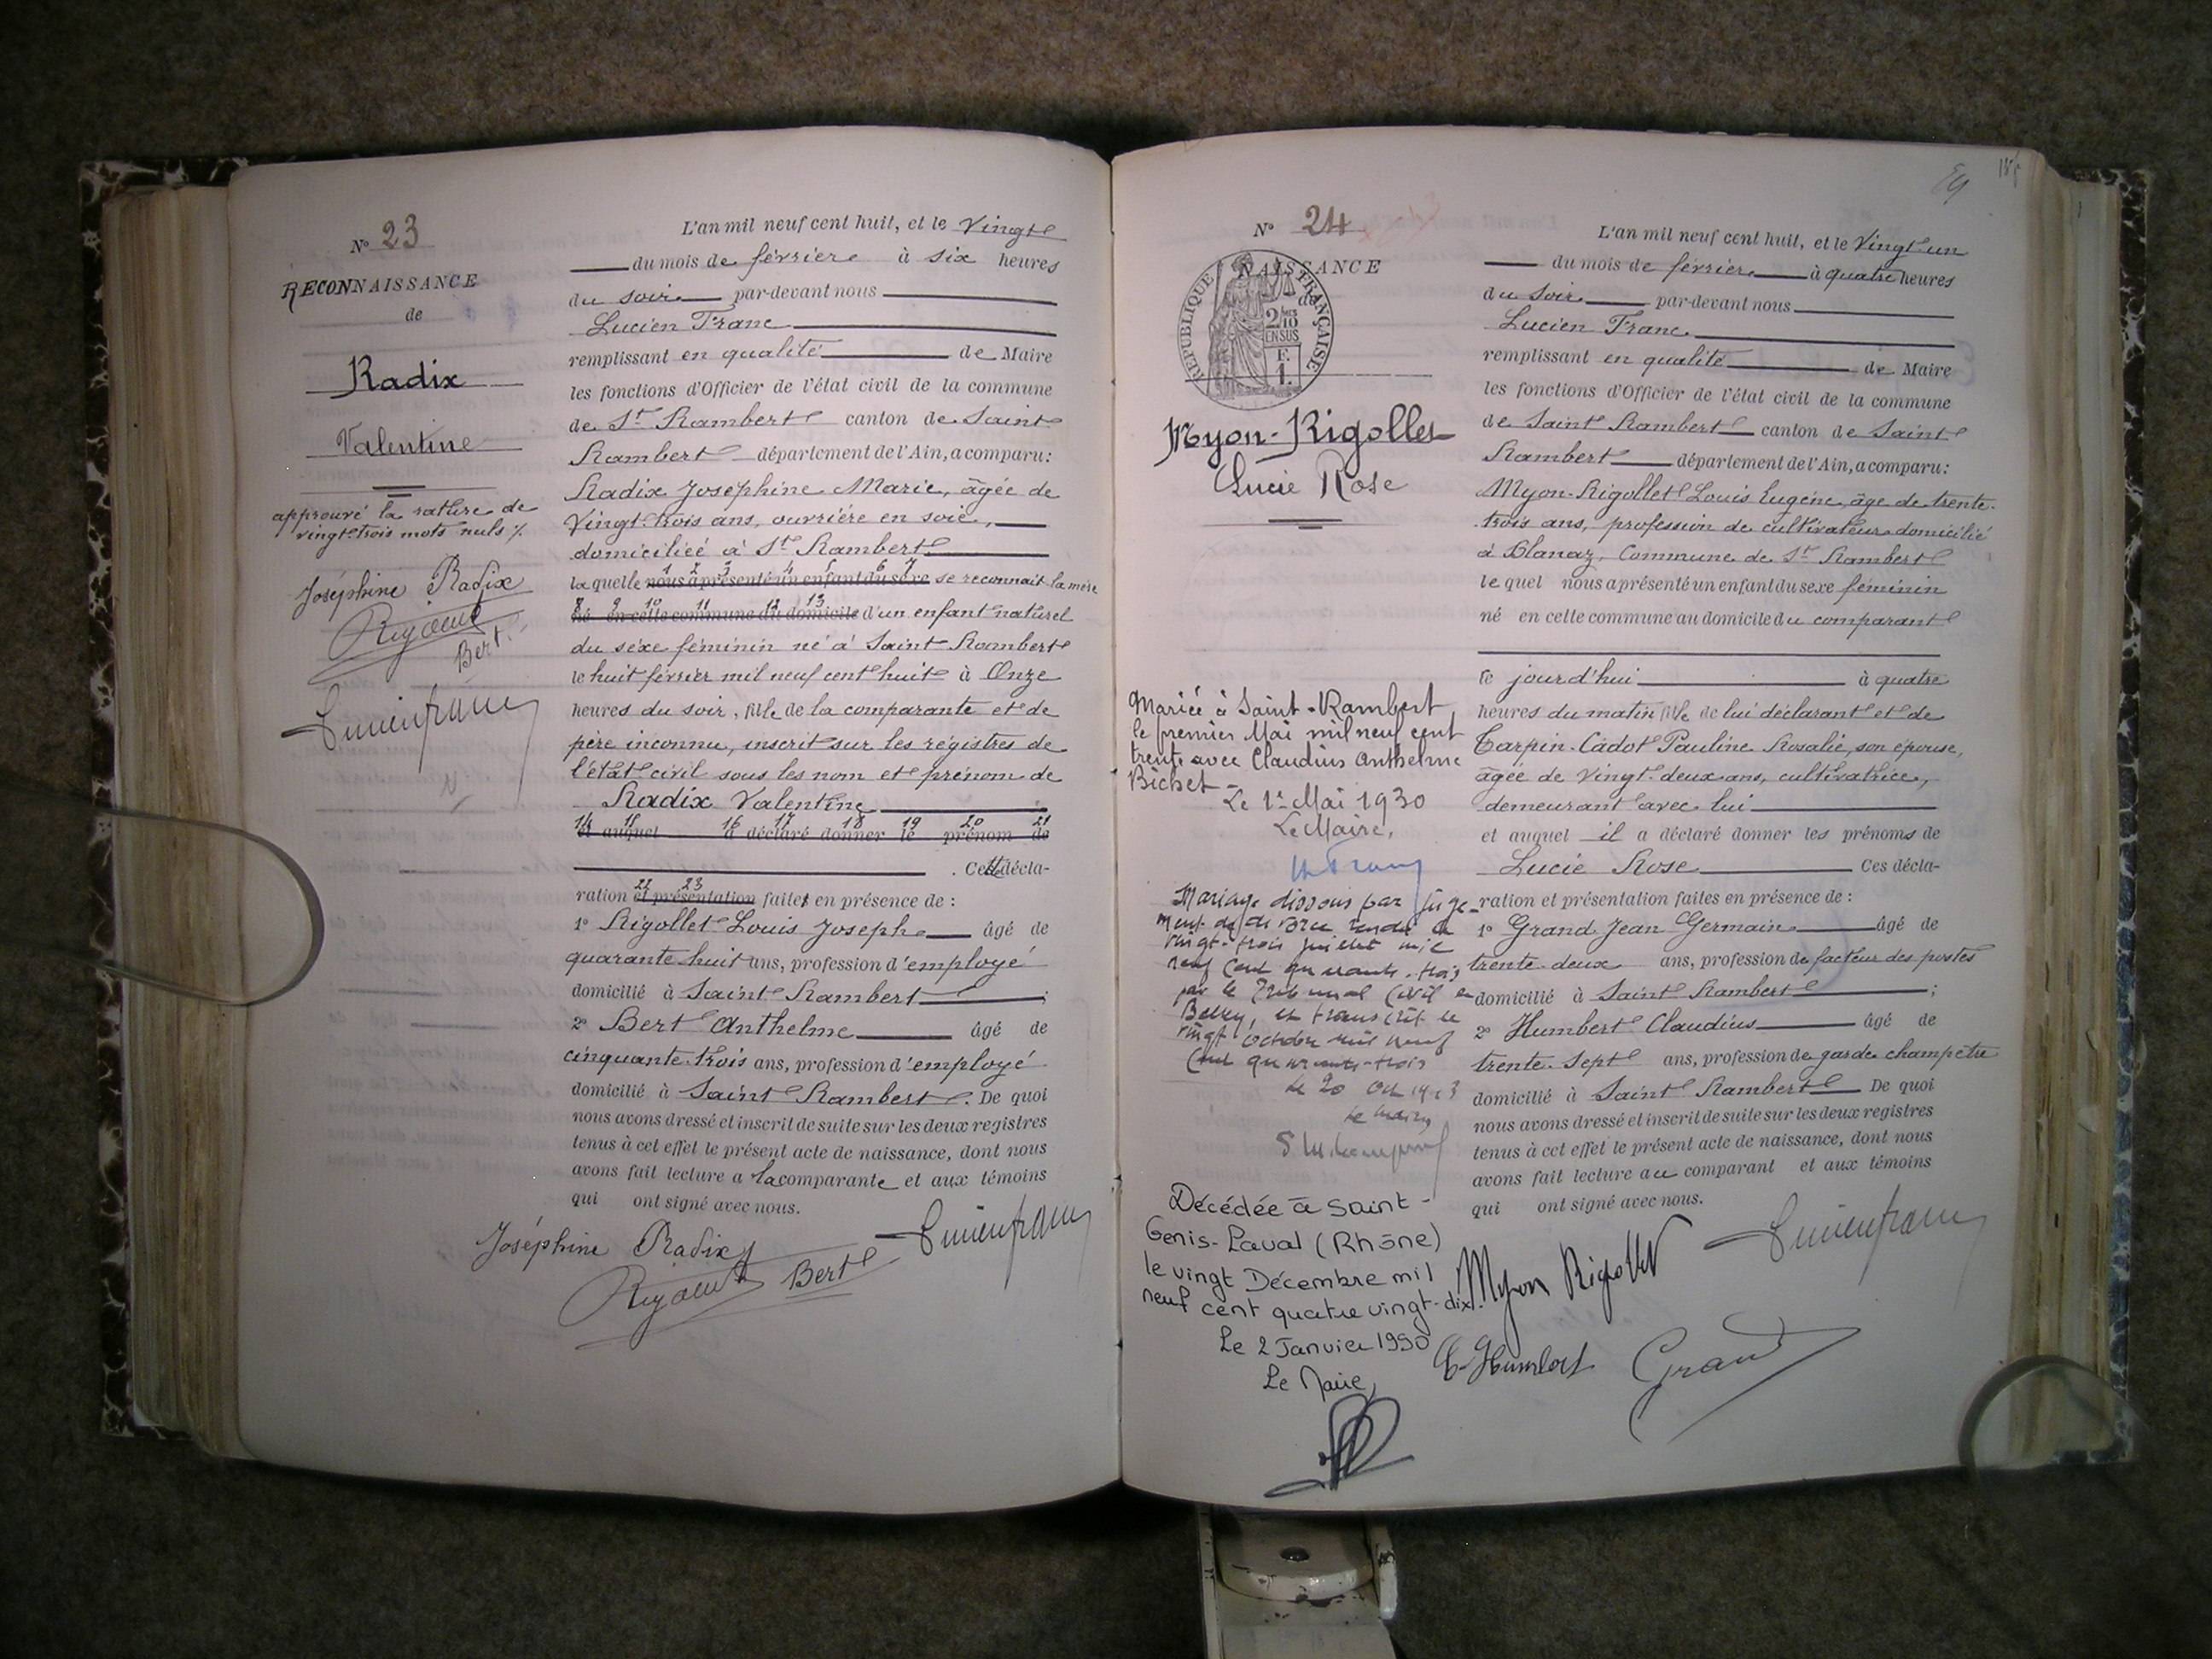 N° 23
RECONNAISSANCE
de
Radix
Valentine
approuvé la rature de
vingt trois mots nuls ./.
Joséphine Radix
Bert
L'an mil neuf cent huit, et le Vingt
du mois de février à six heures
du soir par-devant nous
Lucien Franc
remplissant en qualité de Maire
les fonctions d'Officier de l'état civil de la commune
de St Rambert canton de Saint
Rambert département de l'Ain, a comparu:
Radix Joséphine Marie, âgée de
Vingt-trois ans, ouvrière en soie,
domiciliée à St Rambert
1 2 3 4 5 6 7
laquelle nous a présenté un enfant du sexe se reconnait la mère
8 9 10 11 12 13
né en cette commune au domicile d'un enfant naturel
du séxe féminin né à Saint Rambert
le huit février mil neuf cent huit à Onze
heures du soir, fille de la comparante et de
père inconnu, inscrit sur les régistres de
l'état civil sous les nom et prénom de
Radix Valentine
14 15 16 17 18 19 20 21
et auquel a déclaré donner le prénom de
Cette décla-
22 23
ration et présentation faites en présence de :
1° Rigollet Louis Joseph âgé de
quarante huit ans, profession d'employé
domicilié à Saint Rambert ;
2° Bert Anthelme âgé de
cinquante-trois ans, profession d'employé
domicilié à Saint Rambert. De quoi
nous avons dressé et inscrit de suite sur les deux registres
tenus à cet effet le présent acte de naissance, dont nous
avons fait lecture a la comparante et aux témoins
qui ont signé avec nous.
Joséphine Radix
Bert
N° 24
NAISSANCE
de
RÉPUBLIQUE FRANÇAISE
2/10
EN SUS
F.
1.
Myon-Rigollet
Lucie Rose
Mariée à Saint-Rambert
le premier Mai mil neuf cent
trente avec Claudius Anthelme
Bichet -
Le 1er Mai 1930
Le Maire,
Mariage dissous par juge-
ment de divorce rendu le
vingt-trois juillet mil
neuf cent quarante-trois
par le Tribunal Civil de
Belley, et transcrit le
vingt octobre mil neuf
cent quarante-trois
Le 20 Oct 1943
Le Maire
Décédée à Saint-
Genis-Laval (Rhône)
le vingt Décembre mil
neuf cent quatre vingt-dix.
Le 2 Janvier 1990
Le Maire,
L'an mil neuf cent huit, et le Vingt un
du mois de février à quatre heures
du Soir par-devant nous
Lucien Franc
remplissant en qualité de Maire
les fonctions d'Officier de l'état civil de la commune
de Saint Rambert canton de Saint
Rambert département de l'Ain, a comparu:
Myon-Rigollet Louis Eugène, âgé de trente-
trois ans, profession de cultivateur domicilié
à Blanaz, Commune de St Rambert
lequel nous a présenté un enfant du sexe féminin
né en cette commune au domicile du comparant
ce jourd'hui à quatre
heures du matin fille de lui déclarant et de
Tarpin-Cadot Pauline Rosalie, son épouse,
âgée de Vingt-deux ans, cultivatrice,
demeurant avec lui
et auquel il a déclaré donner les prénoms de
Lucie Rose Ces décla-
ration et présentation faites en présence de :
1° Grand Jean Germain âgé de
trente-deux ans, profession de facteur des postes
domicilié à Saint Rambert ;
2° Humbert Claudius âgé de
trente-Sept ans, profession de garde champêtre
domicilié à Saint Rambert De quoi
nous avons dressé et inscrit de suite sur les deux registres
tenus à cet effet le présent acte de naissance, dont nous
avons fait lecture au comparant et aux témoins
qui ont signé avec nous.
Myon Rigollet
C. Humbert Grand